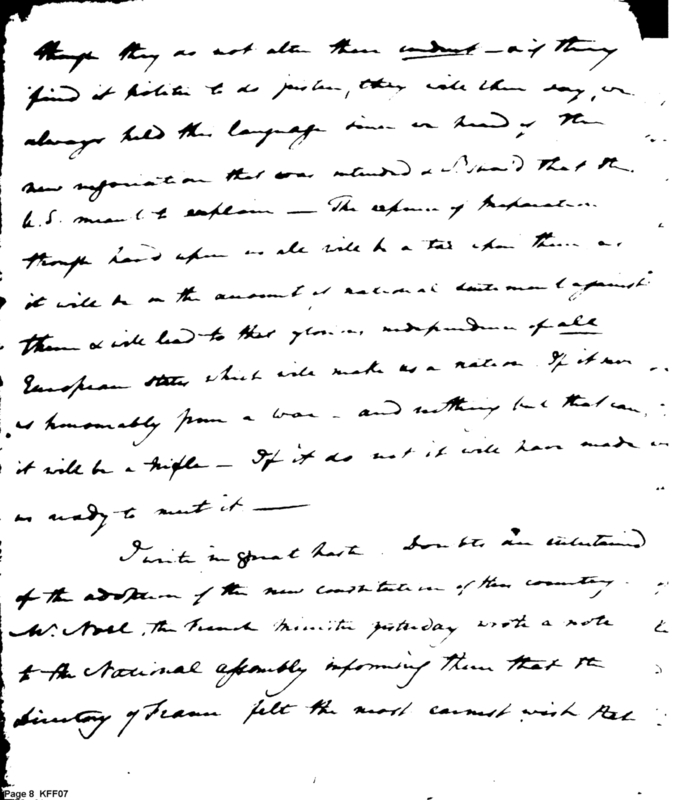 though they do not alter their conduct – as if they
find it politic to do justice, they will then say, we
always held this language since we heard of the
new negociation that was intended & that the
U.S. meant to explain — The expence of Preparation
though hard upon us all will be a tax upon them as
it will be on the amount of national sentiment against
them & will lead to that glorious independence of all
European states which will make us a nation. If it save
us honourably from a war – and nothing but that can,
it will be a trifle – If it do not it will have made
us ready to meet it —
I write in great haste. Doubts are entertained
of the adoption of the new constitution of this country.
Mr. Noel, the French Minister yesterday wrote a note
to the National assembly informing them that the
Directory of France felt the most earnest wish that
Page 8 KFF07